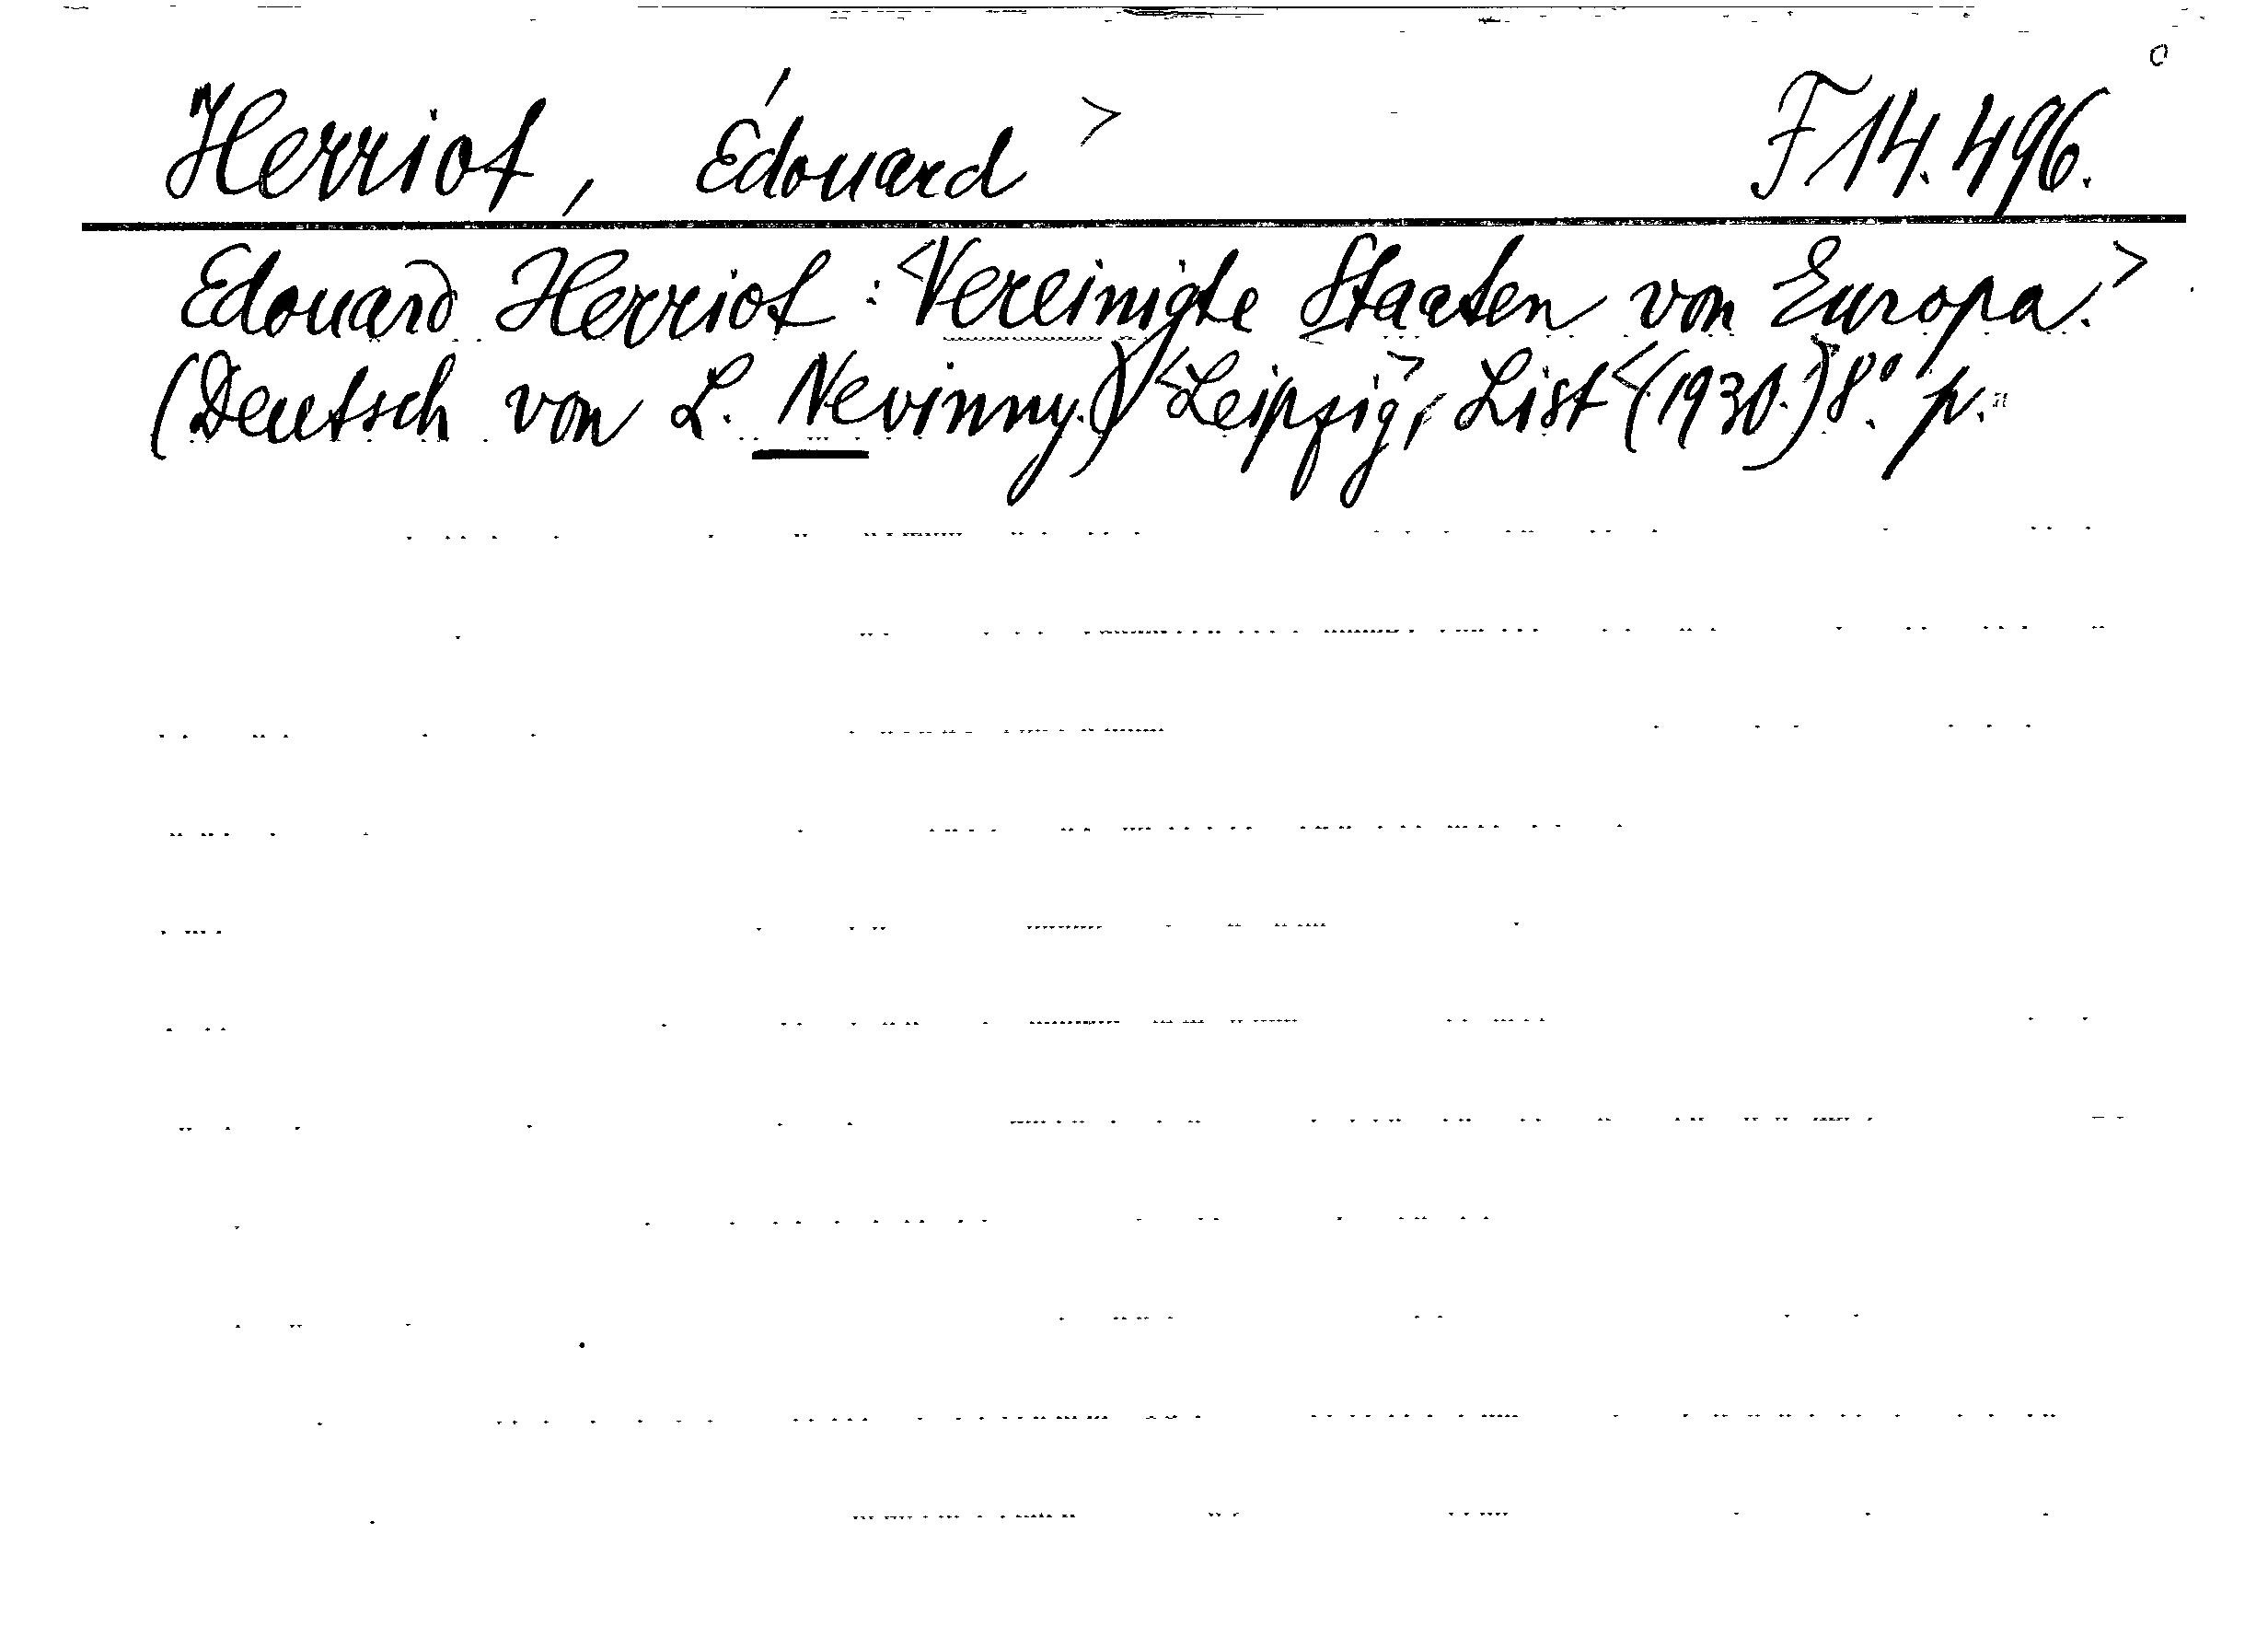 Herriot, Édouard > F 14.496.
Edouard Herriot : <Vereinigte Staaten von Europa.>
(Deutsch von L. Nevinny.) <Leipzig>, List <(1930.)> 8° p.